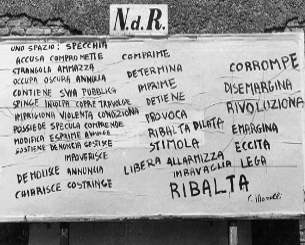 N.d.R.
UNO SPAZIO: SPECCHIA
ACCUSA COMPROMETTE
STRANGOLA AMMAZZA
OCCUPA OSCURA ANNULLA
CONTIENE SVIA PUBBLICA
SPINGE INVOLGE COPRE TRAVOLGE
IMPRIGIONA VIOLENTA CONDIZIONA
POSSIEDE SPECULA COMPRENDE
MODIFICA ESPRIME
SOSTIENE DENUNCIA GESTISCE
IMPOVERISCE
DEMOLISCE ANNUNCIA
CHIARISCE COSTRINGE
COMPRIME
DETERMINA
IMPRIME
DETIENE
PROVOCA
RIBALTA DILATA
STIMOLA
LIBERA ALLARMIZZA
IMBAVAGLIA LEGA
RIBALTA
CORROMPE
DISEMARGINA
RIVOLUZIONA
EMARGINA
ECCITA